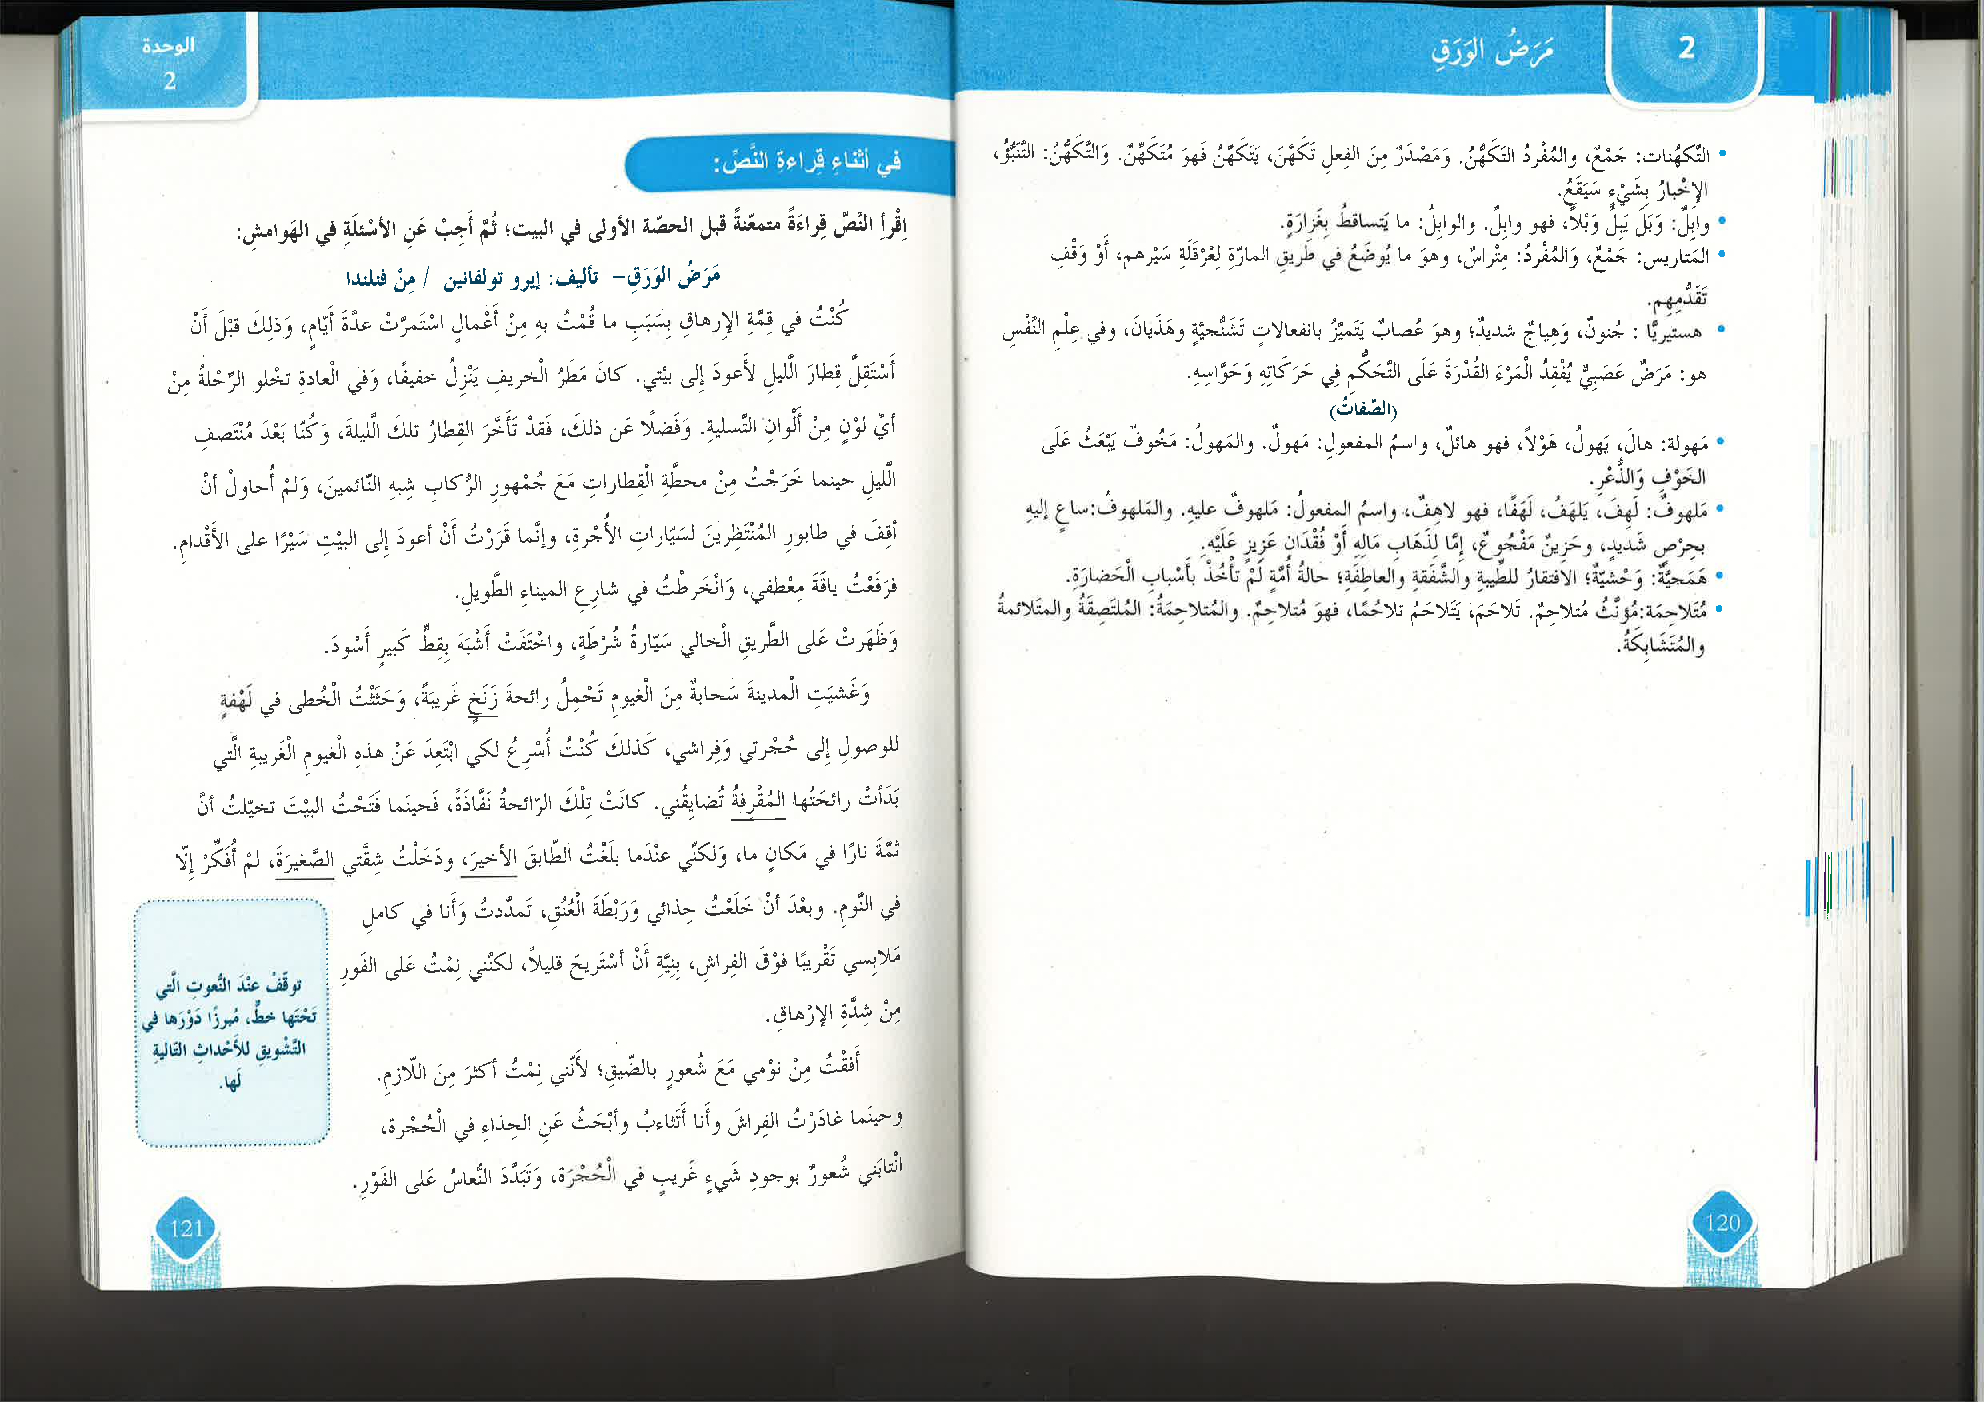 2
مَرَضُ الوَرَقِ
• التَّكهُنات: جَمْعٌ، والمُفْردُ التَكَهُّنُ. وَمَصْدَرٌ مِنَ الفِعلِ تَكَهَّنَ، يَتَكَهَّنُ فَهوَ مُتَكَهِّنٌ. وَالتَّكَهُّنُ: التَّنَبُّؤُ،
الإخْبارُ بِشَيْءٍ سَيَقَعُ.
• وابِلٌ: وَبَلَ يَبِلُ وَبْلاً، فهو وابِلٌ. والوابِلُ: ما يَتَساقطُ بِغَزارَةٍ.
• المَتاريس: جَمْعٌ، وَالمُفْردُ: مِتْراسٌ، وهوَ ما يُوضَعُ في طَريقِ المارّةِ لِعَرْقَلَةِ سَيْرهم، أَوْ وَقْفِ
تَقَدُّمِهِم.
• هستيريًّا : جُنونٌ، وَهِياجٌ شديدٌ؛ وهوَ عُصابٌ يَتَميَّزُ بانفعالاتٍ تَشَنُّجيَّةٍ وهَذَيانَ، وفي عِلْمِ النَّفْسِ
هو: مَرَضٌ عَصَبِيٌّ يُفْقِدُ المَرْءَ القُدْرَةَ عَلَى التَّحَكُّمِ فِي حَرَكَاتِهِ وَحَوَّاسِهِ.
(الصّفاتُ)
• مَهولة: هالَ، يَهولُ، هَوْلاً، فهو هائلٌ، واسمُ المفعولِ: مَهولٌ. والمَهولُ: مَخُوفٌ يَبْعَثُ عَلَى
الخَوْفِ وَالذُّعْرِ.
• مَلهوفٌ: لَهِفَ، يَلهَفُ، لَهَفًا، فهو لاهِفٌ، واسمُ المفعولُ: مَلهوفٌ عليهِ. والمَلهوفُ:ساعٍ إليهِ
بِحِرْصٍ شَديدٍ، وحَزينٌ مَفْجُوعٌ، إمَّا لِذَهَابِ مَالِهِ أَوْ فُقْدَانِ عَزِيزٍ عَلَيْهِ.
• هَمَجيَّةٌ: وَحْشيّةٌ؛ الافتقارُ للطِّيبةِ والشَّفَقةِ والعاطِفَةِ؛ حالةُ أُمَّةٍ لَمْ تأخُذْ بأَسْبابِ الْحَضارَةِ.
• مُتَلاحِمَة:مُؤنَّثُ مُتلاحِمٌ. تَلاحَمَ، يَتَلاحَمُ تلاحُمًا، فهوَ مُتلاحِمٌ. والمُتلاحِمةُ: المُلتَصِقَةُ والمتَلائمةُ
والمُتَشَابِكَةُ.
120
الوحدة
2
في أثناءِ قِراءةِ النَّصِّ:
اِقْرأِ النّصّ قِراءَةً متمعّنةً قبل الحصّة الأولى في البيت؛ ثُمَّ أَجِبْ عَنِ الأسْئلَةِ في الهَوامشِ:
مَرَضُ الوَرَقِ- تأليف: إيرو تولفانين / مِنْ فنلندا
كُنْتُ في قِمَّةِ الإرهاقِ بِسَبَبِ ما قُمْتُ بِهِ مِنْ أَعْمالٍ اسْتَمرَّتْ عدَّةَ أيّامٍ، وَذلِكَ قبْلَ أنْ
أَسْتَقِلَّ قِطارَ الَّليلِ لأَعودَ إلى بيْتي. كانَ مَطَرُ الْخريفِ يَنْزِلُ خفيفًا، وَفي الْعادةِ تخْلو الرِّحْلةُ مِنْ
أيِّ لوْنٍ مِنْ أَلْوانِ التَّسليةِ. وَفَضلًا عَن ذلكَ، فَقدْ تَأَخَّرَ القِطارُ تلكَ الليلةَ، وَكُنّا بَعْدَ مُنْتَصفِ
الَّليلِ حينما خَرَجْتُ مِنْ محطَّةِ الْقِطاراتِ مَعَ جُمْهورِ الرُّكابِ شِبهِ النّائمينَ، وَلمْ أُحاولْ أنْ
أَقِفَ في طابورِ المُنْتَظِرينَ لسَيّاراتِ الأُجْرةِ، وإنَّما قَرَرْتُ أَنْ أعودَ إلى البيْتِ سَيْرًا على الأقْدامِ.
فرَفَعْتُ ياقَةَ مِعْطفي، وَانْخَرطْتُ في شارِعِ الميناءِ الطَّويلِ.
وَظَهَرتْ عَلى الطَّريقِ الْخالي سَيّارةُ شُرْطَةٍ، واخْتَفَتْ أَشْبَهَ بِقِطٍّ كَبيرٍ أَسْودَ.
وَغَشيَتِ الْمدينةَ سَحابةٌ مِنَ الْغيومِ تَحْمِلُ رائحةَ زَنَخٍ غَريبَةً، وَحَثَثْتُ الْخُطى في لَهْفةٍ
للوصولِ إلى حُجْرتي وَفِراشي، كَذلكَ كُنْتُ أُسْرِعُ لكي ابْتَعِدَ عَنْ هذهِ الْغيومِ الْغَريبةِ الَّتي
بَدَأتْ رائحَتُها المُقْرِفةُ تُضايِقُني. كانَتْ تِلْكَ الرّائحةُ نَفّاذَةً، فَحينَما فَتَحْتُ البيْتَ تخيّلتُ أنّ
ثمَّةَ نارًا في مَكانٍ ما، وَلكنّي عنْدَما بلَغْتُ الطّابقَ الأخيرَ، ودَخَلْتُ شِقَّتي الصَّغيرَةَ، لمْ أُفَكِّرْ إلّا
في النَّومِ. وبعْدَ أنْ خَلَعْتُ حِذائي وَرَبْطَةَ الْعُنُقِ، تَمدَّدتُ وَأنا في كاملِ
مَلابِسي تَقْريبًا فوْقَ الفِراشِ، بِنِيَّةِ أَنْ أسْتَريحَ قليلاً، لكنّني نِمْتُ عَلى الفَورِ
مِنْ شِدَّةِ الإرْهاقِ.
توقّفْ عنْدَ النُّعوتِ الَّتي
تَحْتَها خطٌّ، مُبرزًا دَوْرَها في
التَّشْويقِ للأَحْداثِ التّاليةِ
لَها.
أَفقْتُ مِنْ نوْمي مَعَ شُعورٍ بالضّيقِ؛ لأنّني نِمْتُ أكثرَ مِنَ اللّازمِ.
وحينَما غادَرْتُ الفِراشَ وأَنا أَتَثاءبُ وأبْحَثُ عَنِ الحِذاءِ في الْحُجْرة،
انْتابَني شُعورٌ بوجودِ شَيءٍ غَريبٍ في الْحُجْرَة، وَتَبَدَّدَ النُّعاسُ عَلى الفَوْرِ.
121